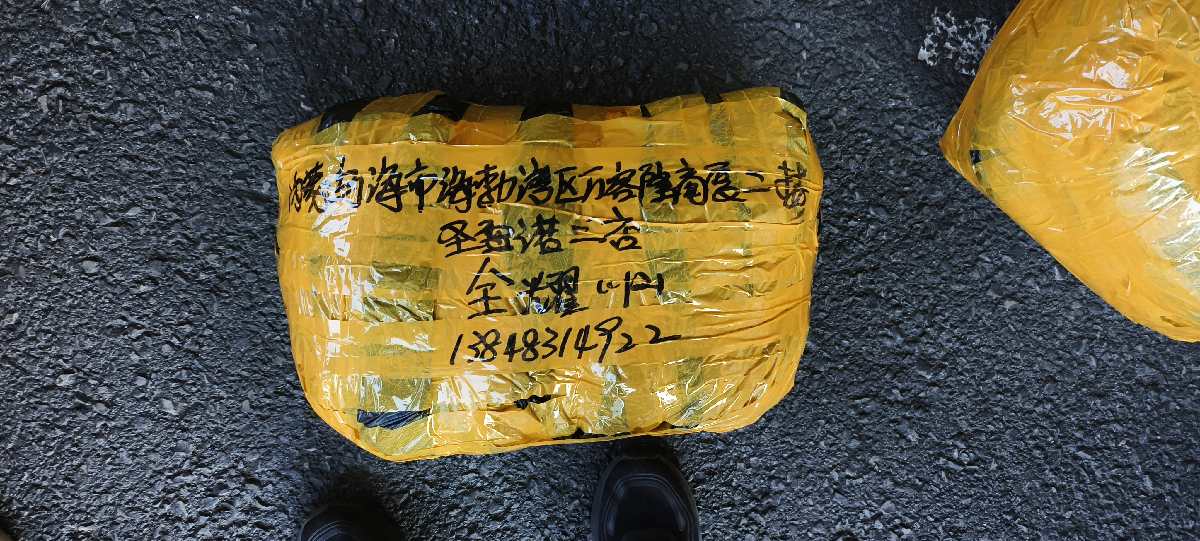 内蒙乌海市海勃湾区万客隆商厦二楼
圣弗诺二店
金耀
13848314922